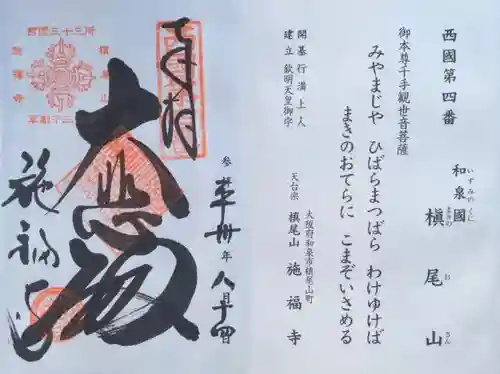 西國第四番
和泉國
いずみのくに
槇尾山
まきの
お
さん
御本尊千手観世音菩薩
みやまじや ひばらまつばら わけゆけば
まきのおてらに こまぞいさめる
開基 行満上人
建立 欽明天皇御宇
大阪府和泉市槇尾山町
天台宗 槇尾山 施福寺
奉拝
参 平成 卅 年 八月十四日
大悲殿
施福寺
西国三十三所
槇尾山
施福寺